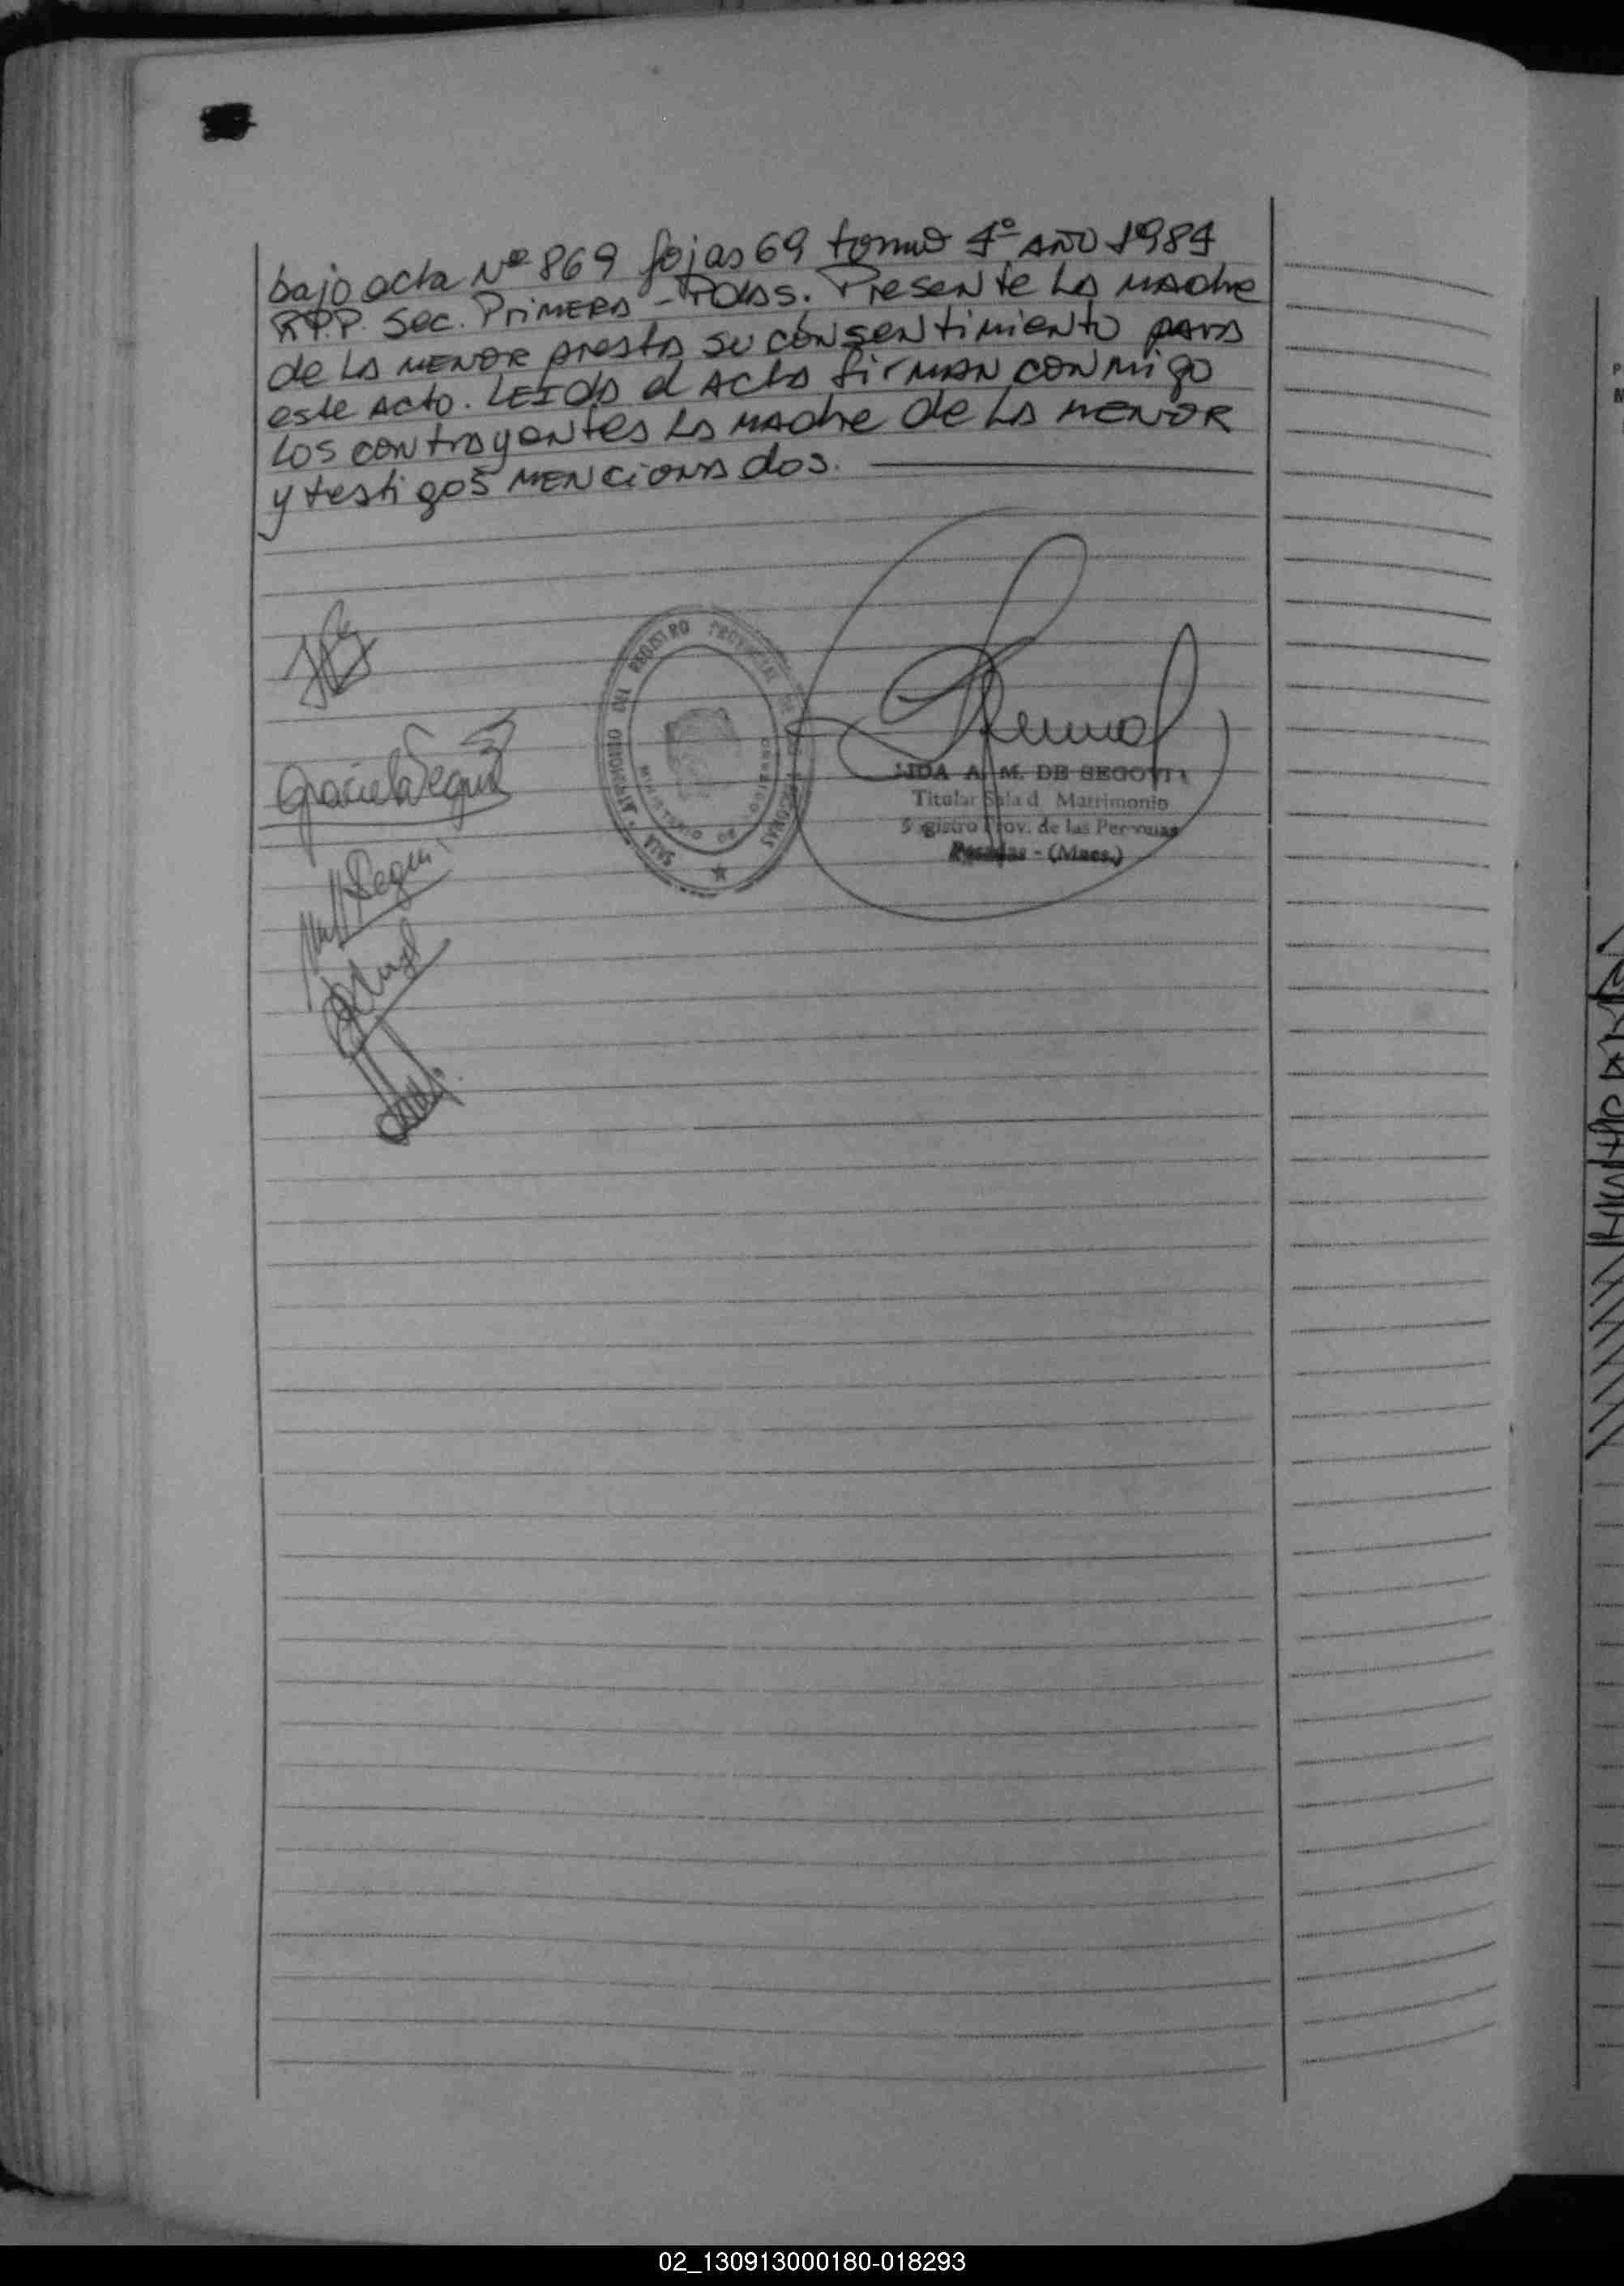 bajo acta Nº 869 fojas 69 tomo 1º AÑO 1984
R.P.P. Sec. Primera - Pdas. Presente la madre
de la menor presta su consentimiento para
este acto. Leida el acta firman conmigo
los contrayentes la madre de la menor
y testigos mencionados.
Graciela Segui
Segui
SALA MATRIMONIO DEL REGISTRO PROVINCIAL DE LAS PERSONAS
MINISTERIO DE GOBIERNO
A. M. DE SEGOVIA
Titular Sala d Matrimonio
Registro Prov. de las Personas
Posadas - (Mnes.)
02_130913000180-018293